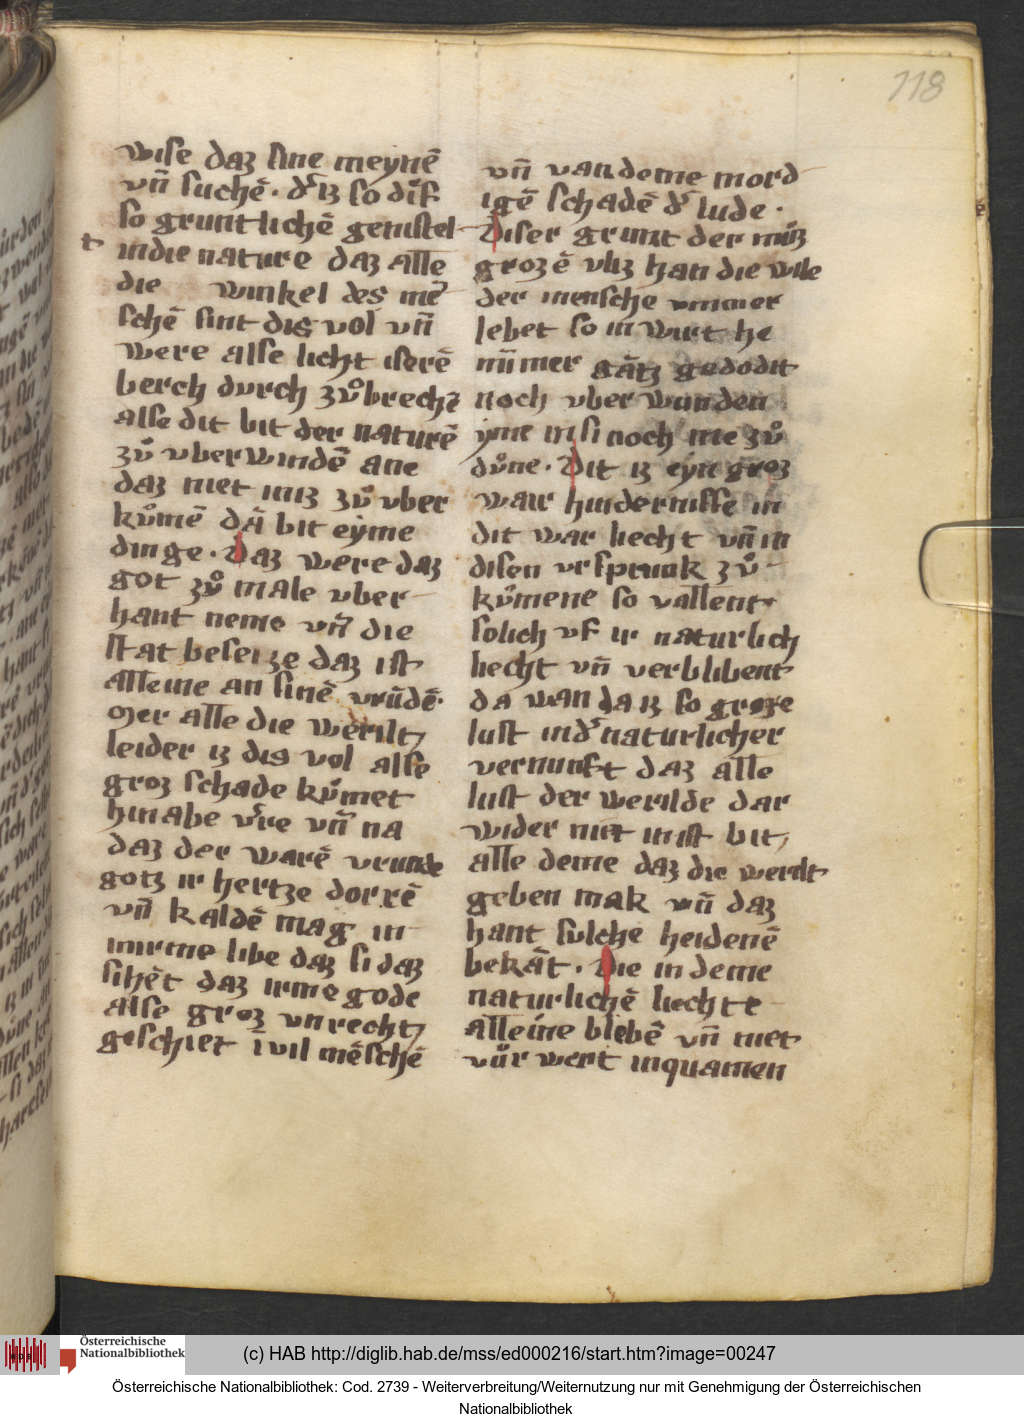 118
wise daz sine meynē
vn̄ suchē · d'iz so dif
so gruntlichē genistel
t indie nature daz alle
die winkel des mē
schē sint dis vol vn̄
were alse licht iserē
berch durch zůbrechē
alse dit bit der naturē
zů vberwindē ane
daz niet iniz zů vber
kůmē dā bit eyme
dinge · Daz were daz
got zů male vber
hant neme vn̄ die
stat beseize daz ist
alleine an sinē vrūdē·
Mer alle die werilt
leider iz dis vol alse
groz schade kůmet
hinabe v're vn̄ na
daz der warē vrunde
gotz ir hertze dorrē
vn̄ kaldē mag in
irme libe daz si daz
sihēt daz irme gode
alse groz vnrecht
geschiet wil mēschē
vn̄ van deme mord
igē schadē d' lude ·
Diser grunt der můz
grozē vliz han die wile
der mensche vmmer
lebet so in wirt he
nūmer gātz gedodit
noch vber wunden
yme in si noch me zů
důne · Dit iz eyn groz
war hindernisse in
dit war liecht vn̄ in
disen vrsprunk zů
kůmene so vallent
solich vf ir naturlich
liecht vn̄ verblibent
da wan da iz so groze
lust ind' naturlicher
vernunft daz alle
lust der werilde dar
wider niet in ist bit
alle deme daz die werilt
geben mak vn̄ daz
hant sulche heidenē
bekāt · Die in deme
naturlichē liechte
alleine blebē vn̄ niet
vůr wert inquamen
Österreichische
Nationalbibliothek
(c) HAB http://diglib.hab.de/mss/ed000216/start.htm?image=00247
Österreichische Nationalbibliothek: Cod. 2739 - Weiterverbreitung/Weiternutzung nur mit Genehmigung der Österreichischen
Nationalbibliothek